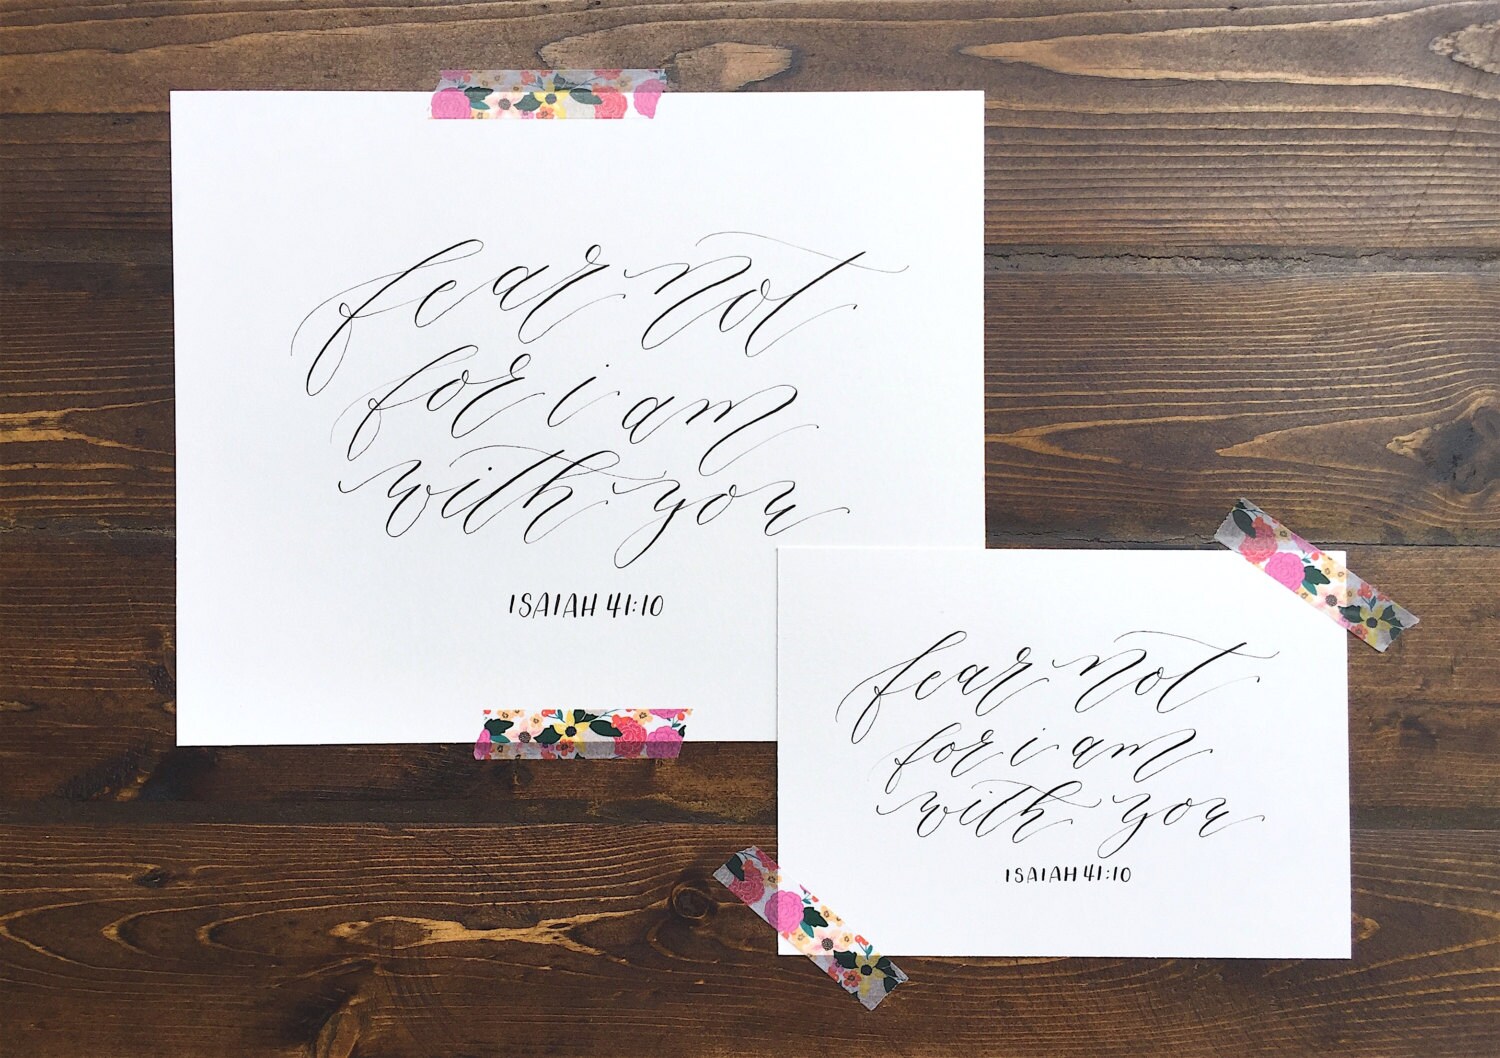 fear not
for i am
with you
ISAIAH 41:10
fear not
for i am
with you
ISAIAH 41:10